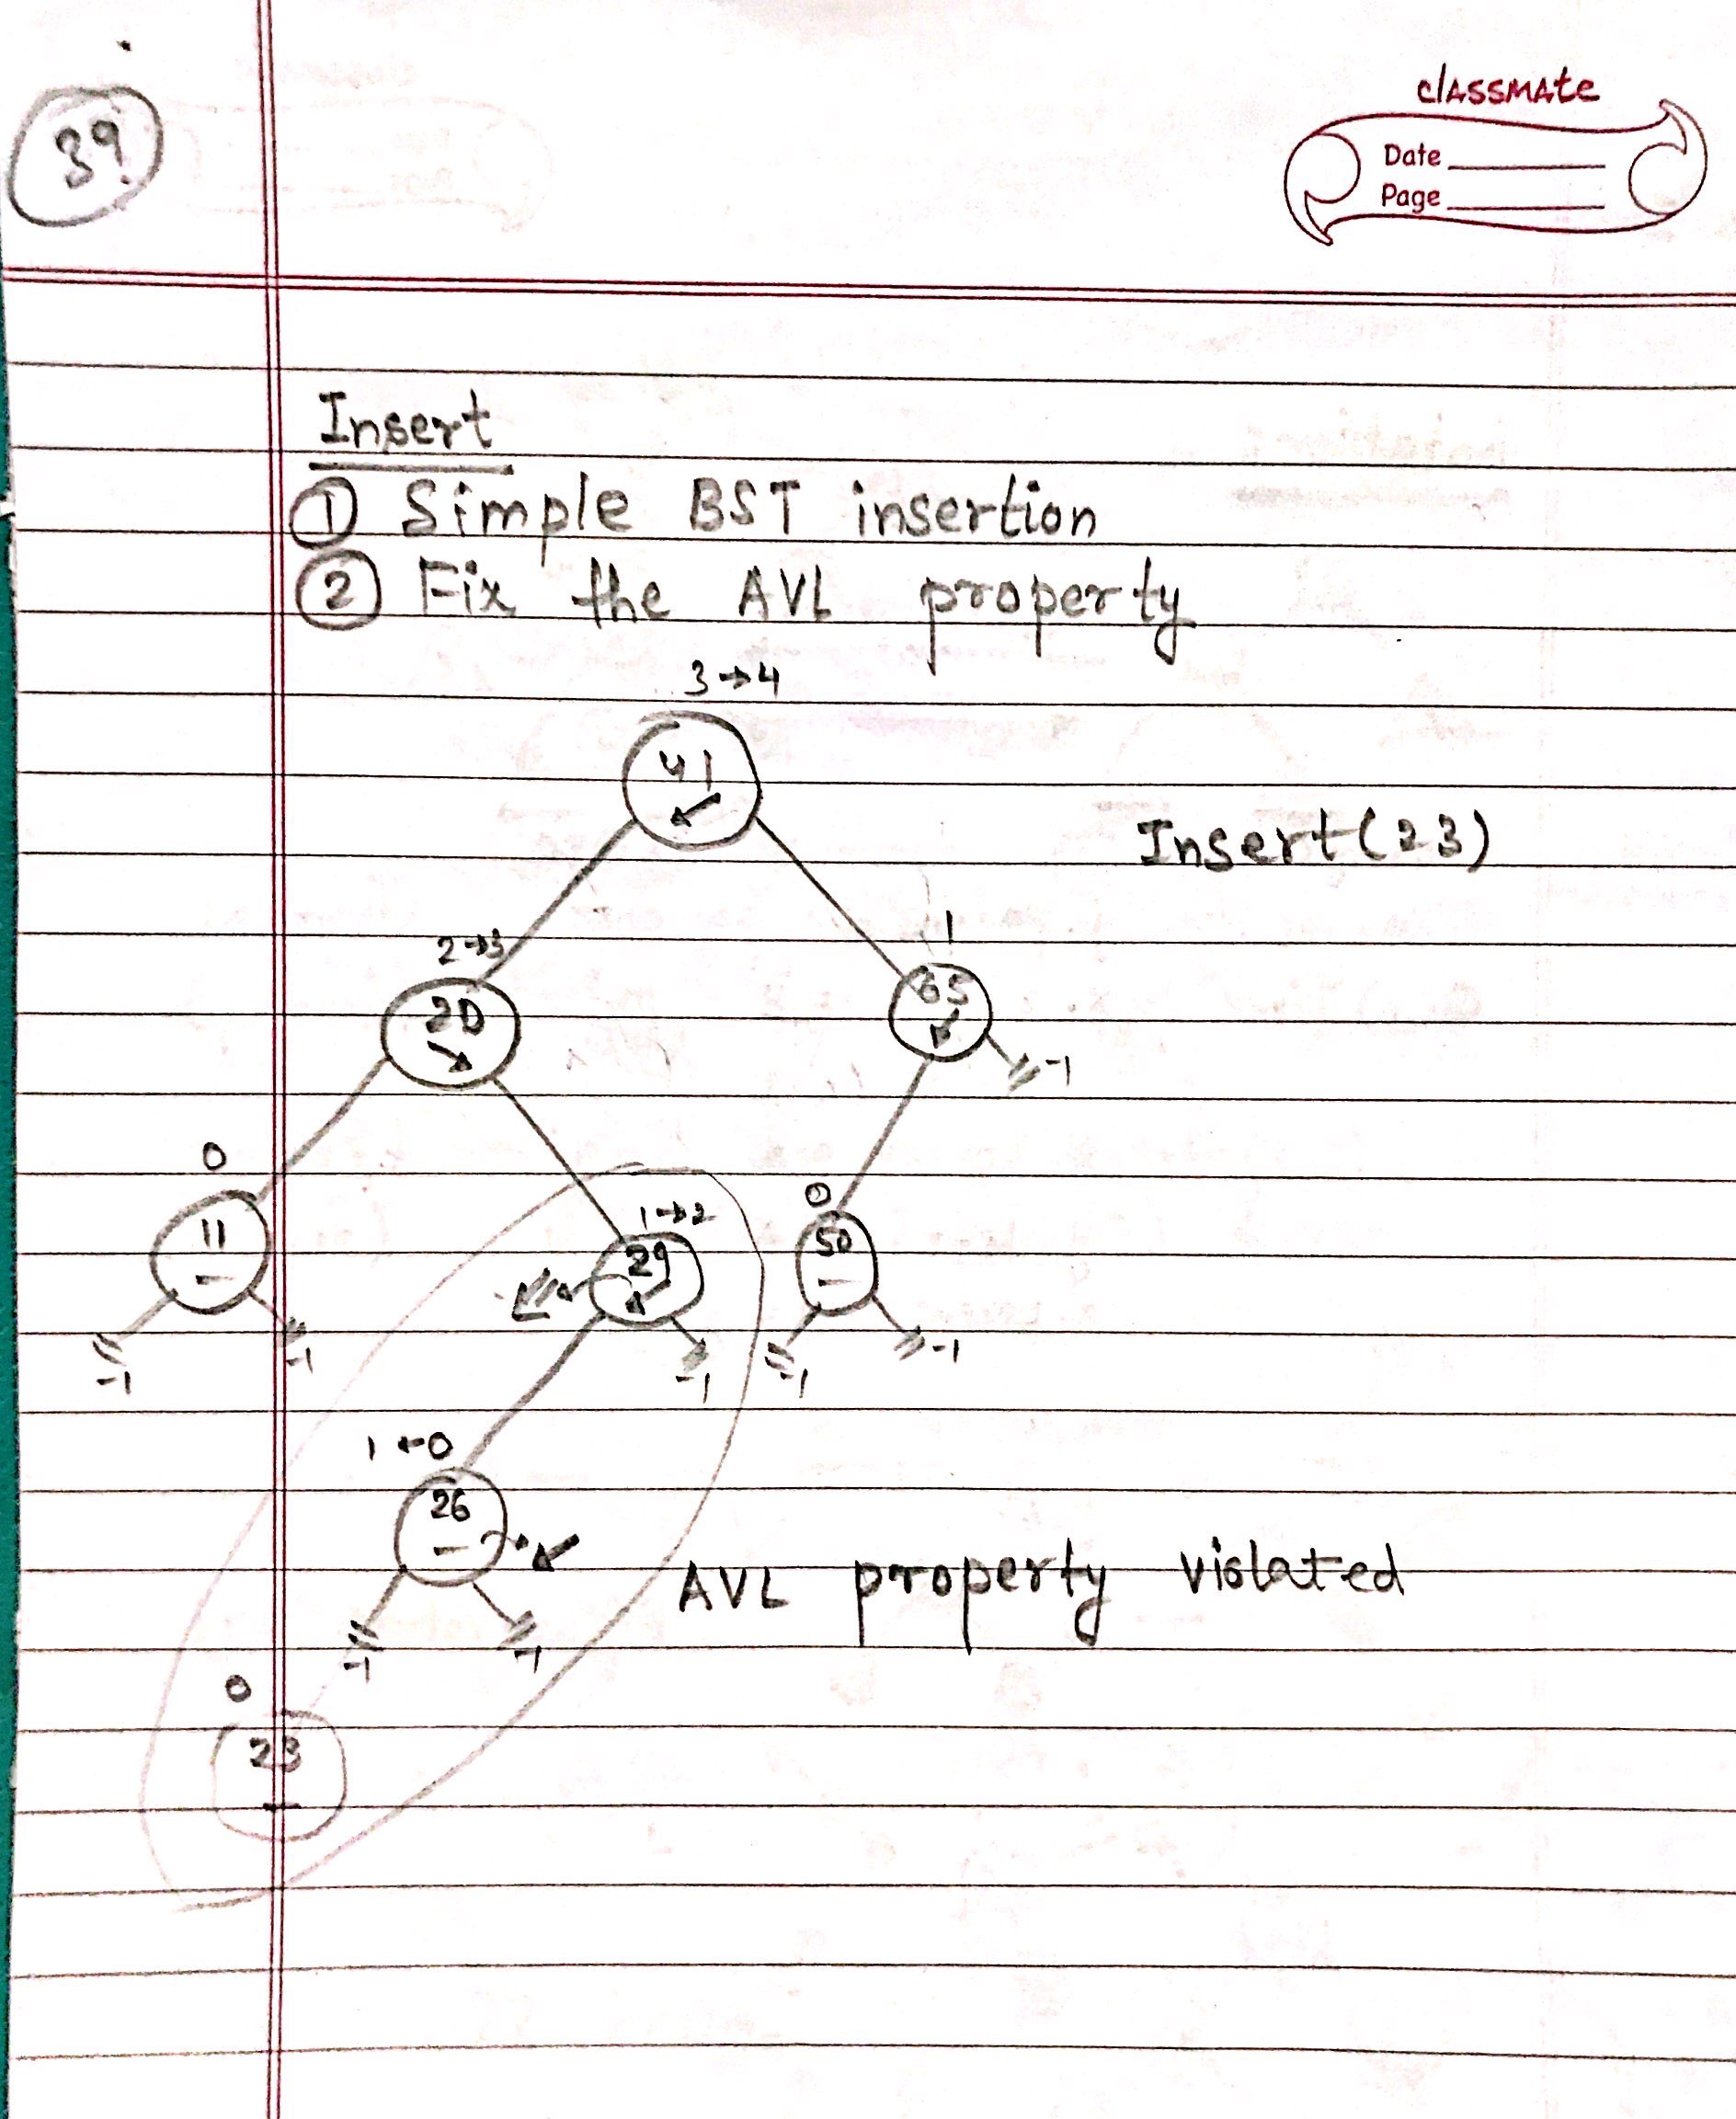 classmate
39
Date
Page
Insert
① Simple BST insertion
② Fix the AVL property
3→4
41
Insert(23)
2→3
1
20
65
-1
0
0
1→2
11
29
50
-1
-1
-1
-1
-1
1←0
26
AVL property violated
-1
-1
0
23